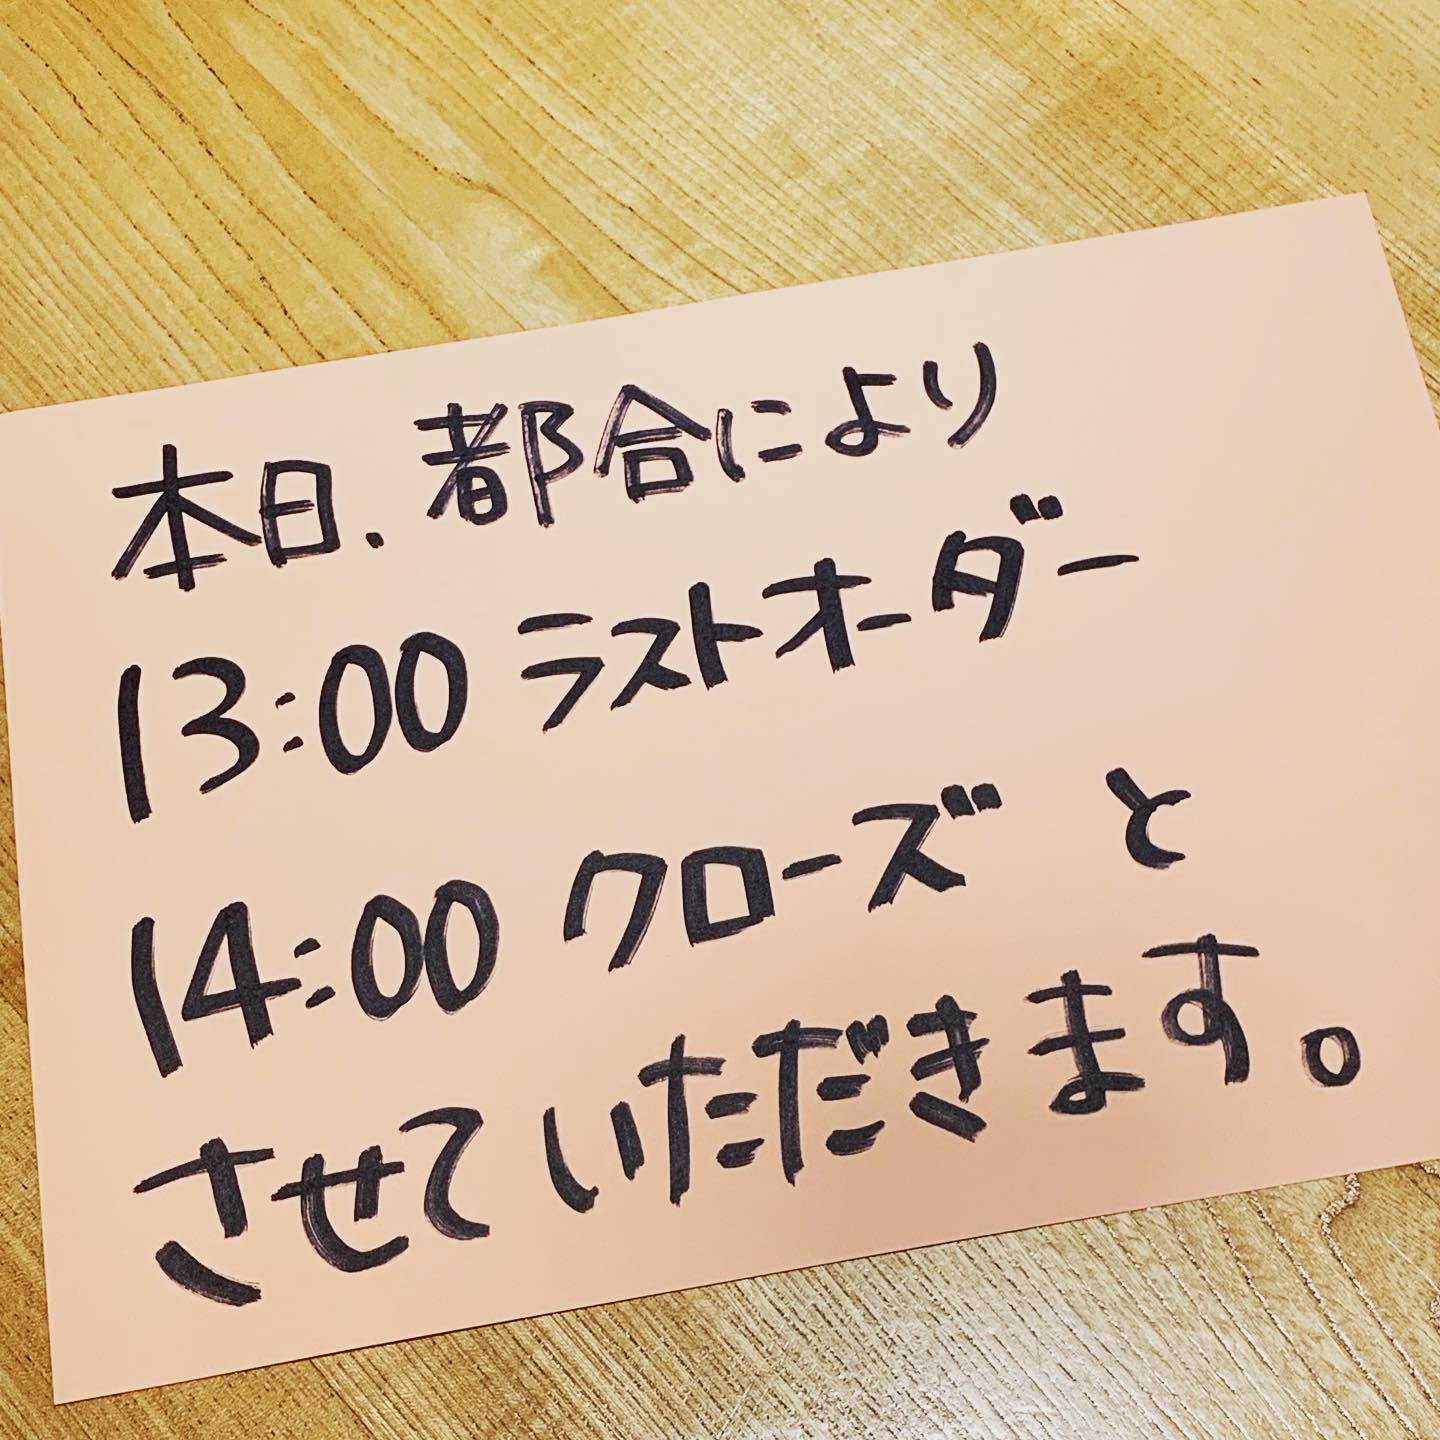 本日、都合により
13:00 ラストオーダー
14:00 クローズ と
させていただきます。